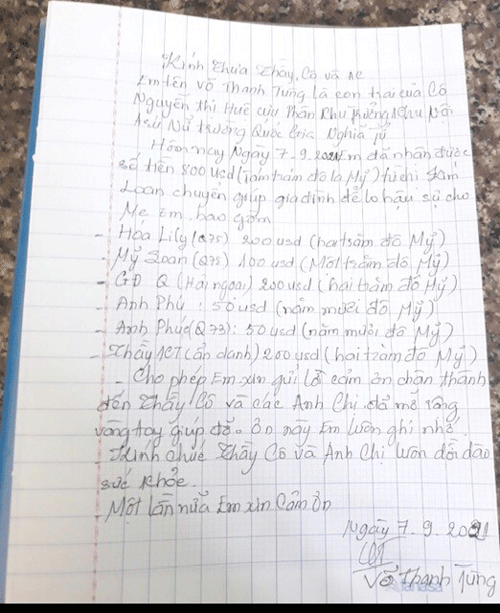 Kính thưa Thầy, Cô và AC
Em tên Võ Thanh Tùng là con trai của Cô
Nguyễn Thị Huê cựu Phân Khu Trưởng Khu Nội
Trú Nữ trường Quốc Gia Nghĩa Tử
Hôm nay Ngày 7.9.2021 Em đã nhận được
số tiền 800 usd (Tám trăm đô la Mỹ) từ chị
Loan chuyển giúp gia đình để lo hậu sự cho
Mẹ Em. bao gồm
- Hoa Lily (Q75) 200 usd (hai trăm đô Mỹ)
- Mỹ Loan (Q75) 100 usd (Một trăm đô Mỹ)
- GĐ Q (Hải ngoại) 200 usd (hai trăm đô Mỹ)
- Anh Phú : 50 usd (năm mươi đô Mỹ)
- Anh Phúc (Q73): 50 usd (năm mươi đô Mỹ)
- Thầy 1CT (ẩn danh) 200 usd (hai trăm đô Mỹ)
- Cho phép Em xin gửi lời cảm ơn chân thành
đến Thầy Cô và các Anh Chị đã mở rộng
vòng tay giúp đỡ. Ơn này Em luôn ghi nhớ.
- Kính chúc Thầy Cô và Anh Chị luôn dồi dào
sức khỏe.
- Một lần nữa Em xin Cảm Ơn
Ngày 7.9.2021
Võ Thanh Tùng